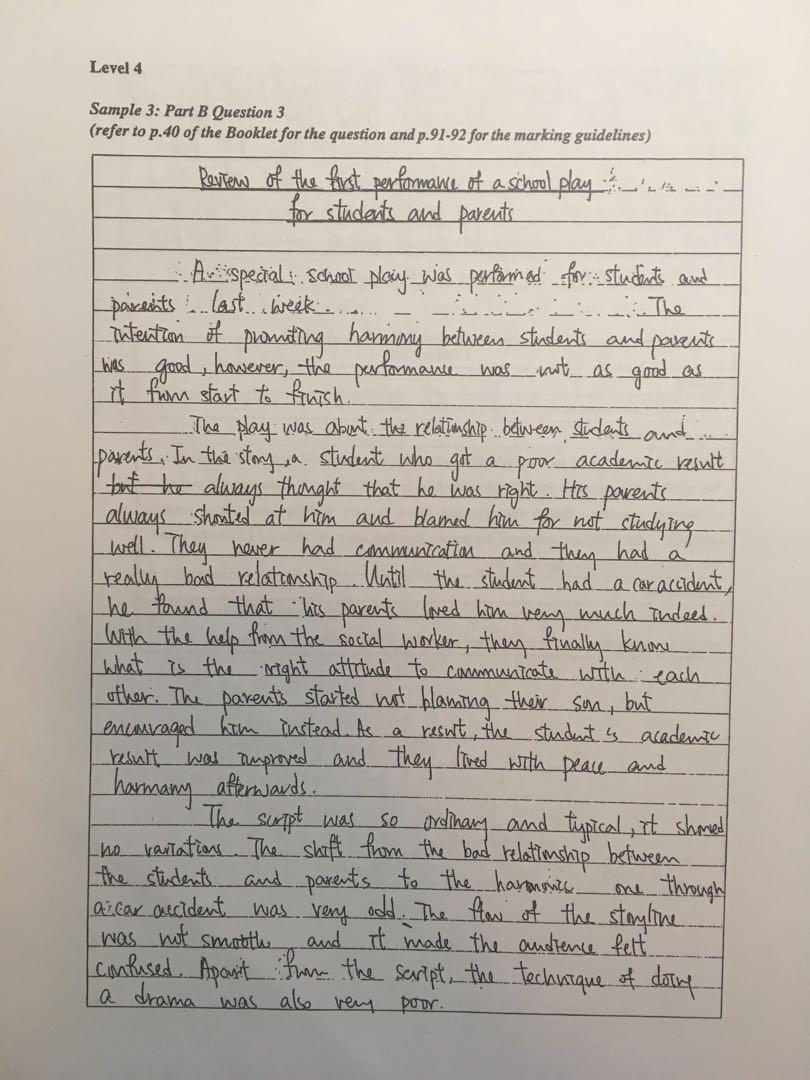 Level 4
Sample 3: Part B Question 3
(refer to p.40 of the Booklet for the question and p.91-92 for the marking guidelines)
Review of the first performance of a school play
for students and parents
A special school play was performed for students and
parents last week. The
intention of promoting harmony between students and parents
was good, however, the performance was not as good as
it from start to finish.
The play was about the relationship between students and
parents. In the story, a student who got a poor academic result
but he always thought that he was right. His parents
always shouted at him and blamed him for not studying
well. They never had communication and they had a
really bad relationship. Until the student had a car accident,
he found that his parents loved him very much indeed.
With the help from the social worker, they finally know
what is the right attitude to communicate with each
other. The parents started not blaming their son, but
encouraged him instead. As a result, the student's academic
result was improved and they lived with peace and
harmany afterwards.
The script was so ordinary and typical, it showed
no variations. The shift from the bad relationship between
the students and parents to the harmonic one through
a car accident was very odd. The flow of the storyline
was not smooth and it made the audience felt
confused. Apart from the script, the technique of doing
a drama was also very poor.